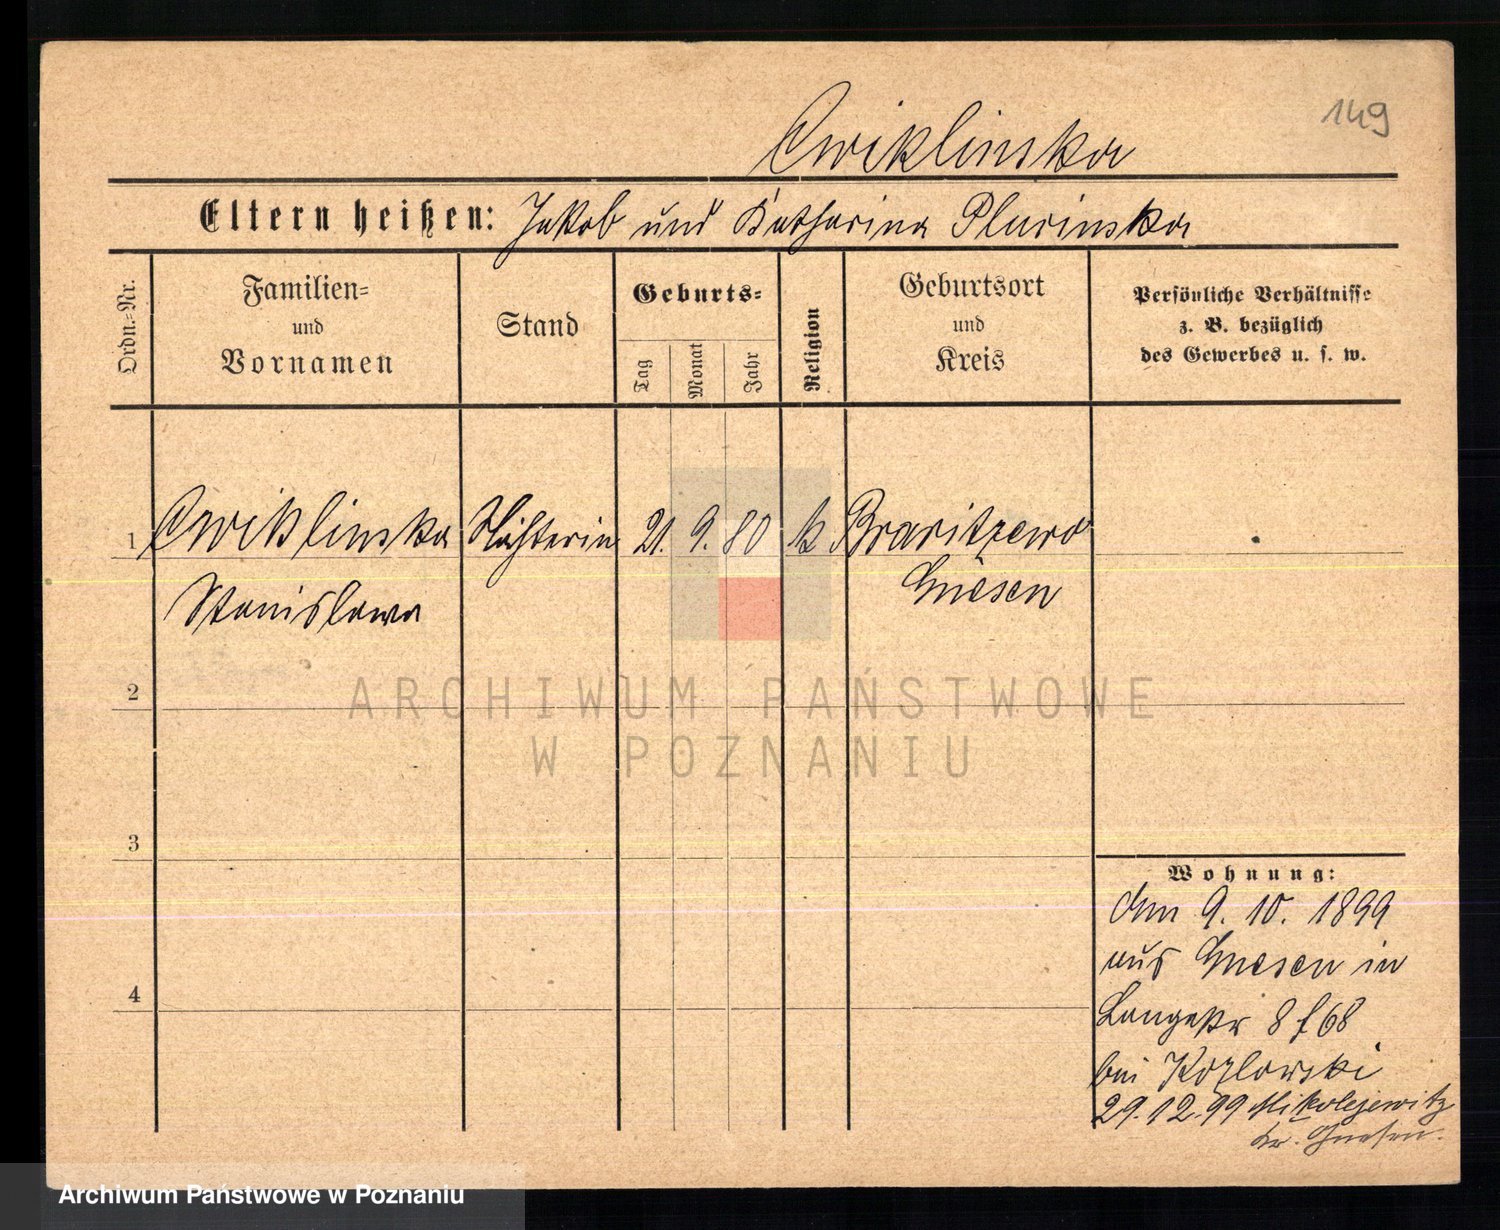 149
Cwiklinska
Eltern heißen: Jakob und Katharina Plurinska
Ordn.=Nr.
Familien=
und
Vornamen
Stand
Geburts=
Tag
Monat
Jahr
Religion
Geburtsort
und
Kreis
Persönliche Verhältnisse
z. B. bezüglich
des Gewerbes u. s. w.
1 Cwiklinska 21. 9. 80 k Braritzewo
Stanislawa Gnesen
2
ARCHIWUM PAŃSTWOWE
W POZNANIU
3
4
Wohnung:
Am 9. 10. 1899
aus Gnesen in
Langestr 8 f 68
bei Kozlowski
29.12.99 Mikolejewitz
Kr. Gnesen.
Archiwum Państwowe w Poznaniu